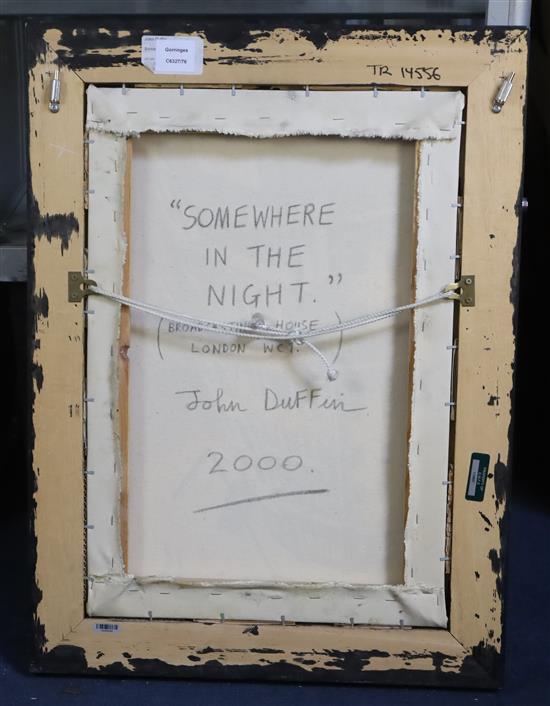 Gorringes
C6327/76
TR 14556
"SOMEWHERE
IN THE
NIGHT."
HOUSE
LONDON WC1.)
John Duffin
2000.